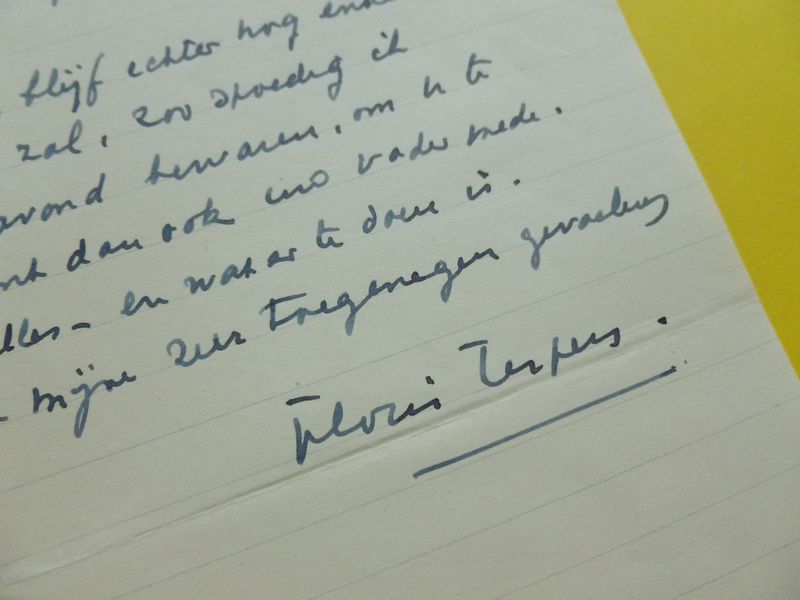 blijf echter nog
zal, zoo spoedig ik
avond bewaren, om U te
dan ook uw vader mede.
alles – en wat er te doen is.
– mijne zeer toegenegen gevoelens
Floris Terpers.